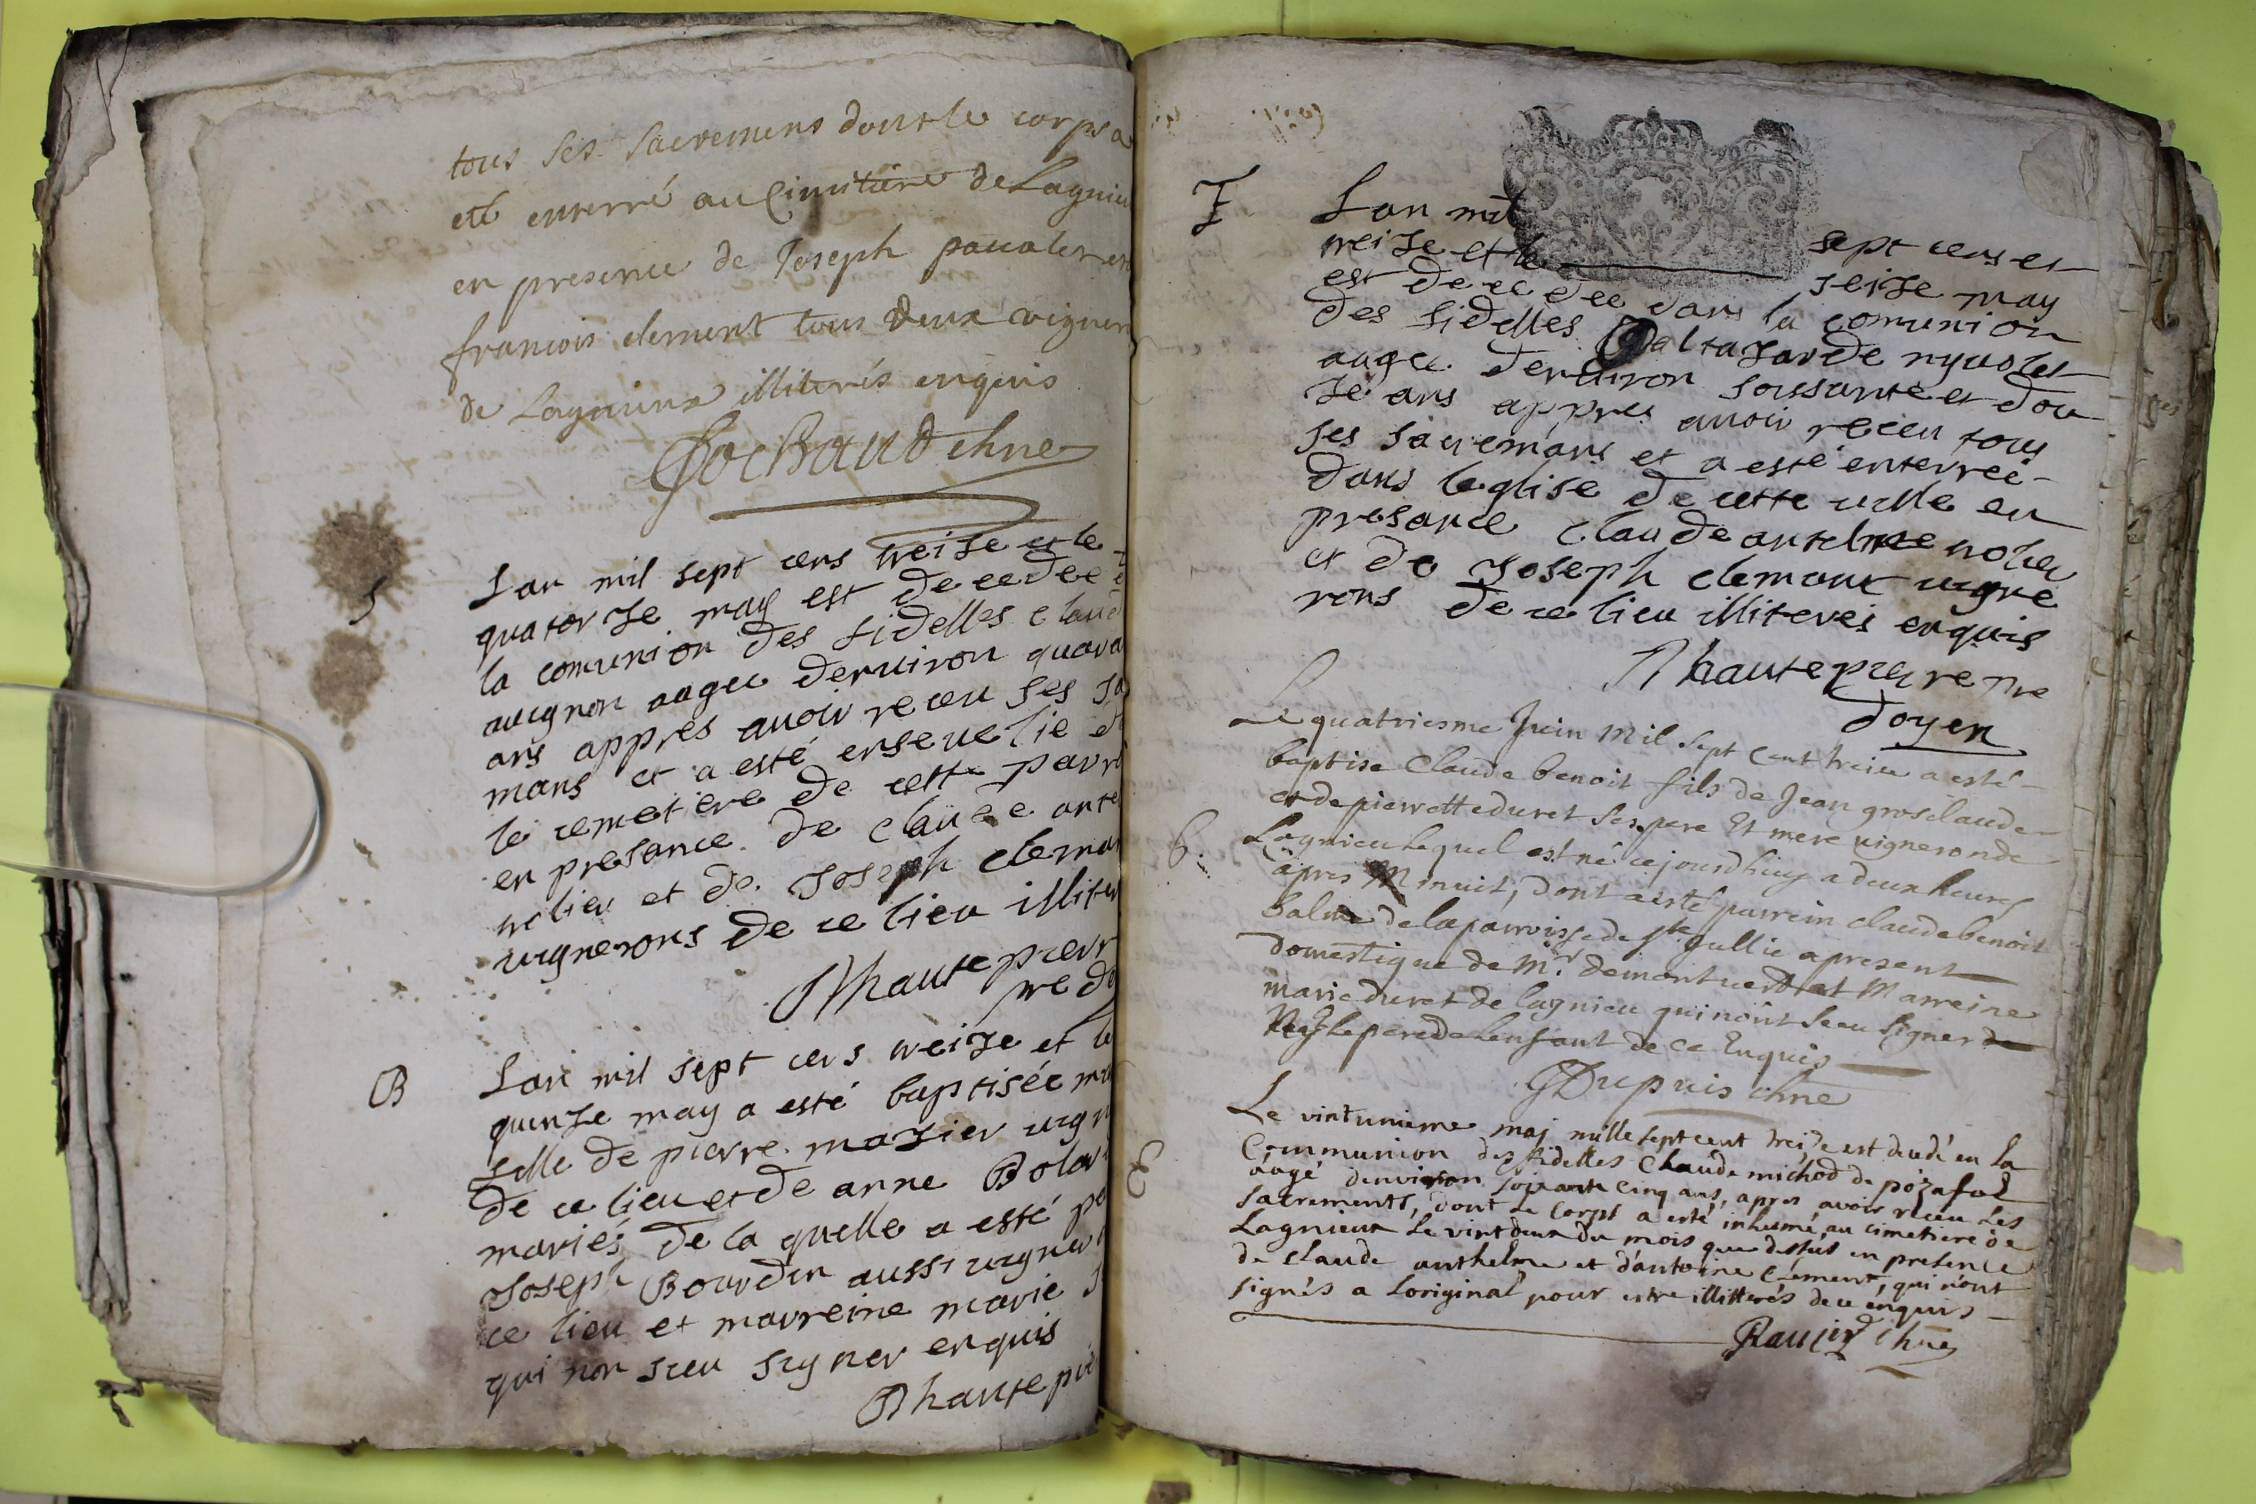 tous ses sacremens dont le corps a
eté enterré au Cimitiere de Lagnieu
en presence de Joseph
francois clement tous deux vigner
de Lagnieux illiterés enquis
chne
Lan mil sept cens treise et le
quatorse may est decedee
la comunion des fidelles claud
augee denviron quara
ans appres avoir receu ses sa
mans et a esté ensevelie
le cemetiere de cette parr
en presance de claude ante
nolier et de Joseph clemat
vignerons de ce lieu illiter
hautepierr
pre do
B
Lan mil sept cens treise et le
quinse may a esté baptisée
fille de pierre masier vign
de ce lieu et de anne Bolar
mariés de la quelle a esté pa
Joseph Bourdin aussi vigner
ce lieu et marreine marie
qui non sceu signer enquis
hautepie
Lan mil sept cens et
treise et le seise may
est decedee dans la comunion
des fidelles Baltasarde
augee denviron soissante et dou
se ans appres avoir receu tous
ses sacremans et a esté enterreé
dans leglise de cette ville en
presance claude antelme nolier
et de Joseph clemant vigne
rons de ce lieu illiteres enquis
hautepierre pre
doyen
Le quatriesme Juin Mil sept Cent treize a esté
baptise Claude benoit fils de Jean grosclaude
et de pierrette duret ses pere Et mere vigneron de
b.
Lagnieu lequel est né ce jourdhuy a deux heures
apres Minuit, dont a esté parrein claude benoit
balme de la parroisse de ste Jullie apresent
domestique de Mr. demontverd et Marreine
marie duret de lagnieu qui nont sceu signer
le pere de Lenfant de ce Enquis
Dupuis chne
Le vintunieme maj mille sept cent treize est decedé en la
Communion des fidelles Claude michod de
âagé denviron soixante Cinq ans, apres avoir receu les
sacrements, dont le Corps a esté inhumé au cimetiere de
Lagnieux le vintdeux du mois que dessus en presence
de claude anthelme et d'antoine Clement, qui n'ont
signés a l'original pour estre illitterés de ce enquis
chne